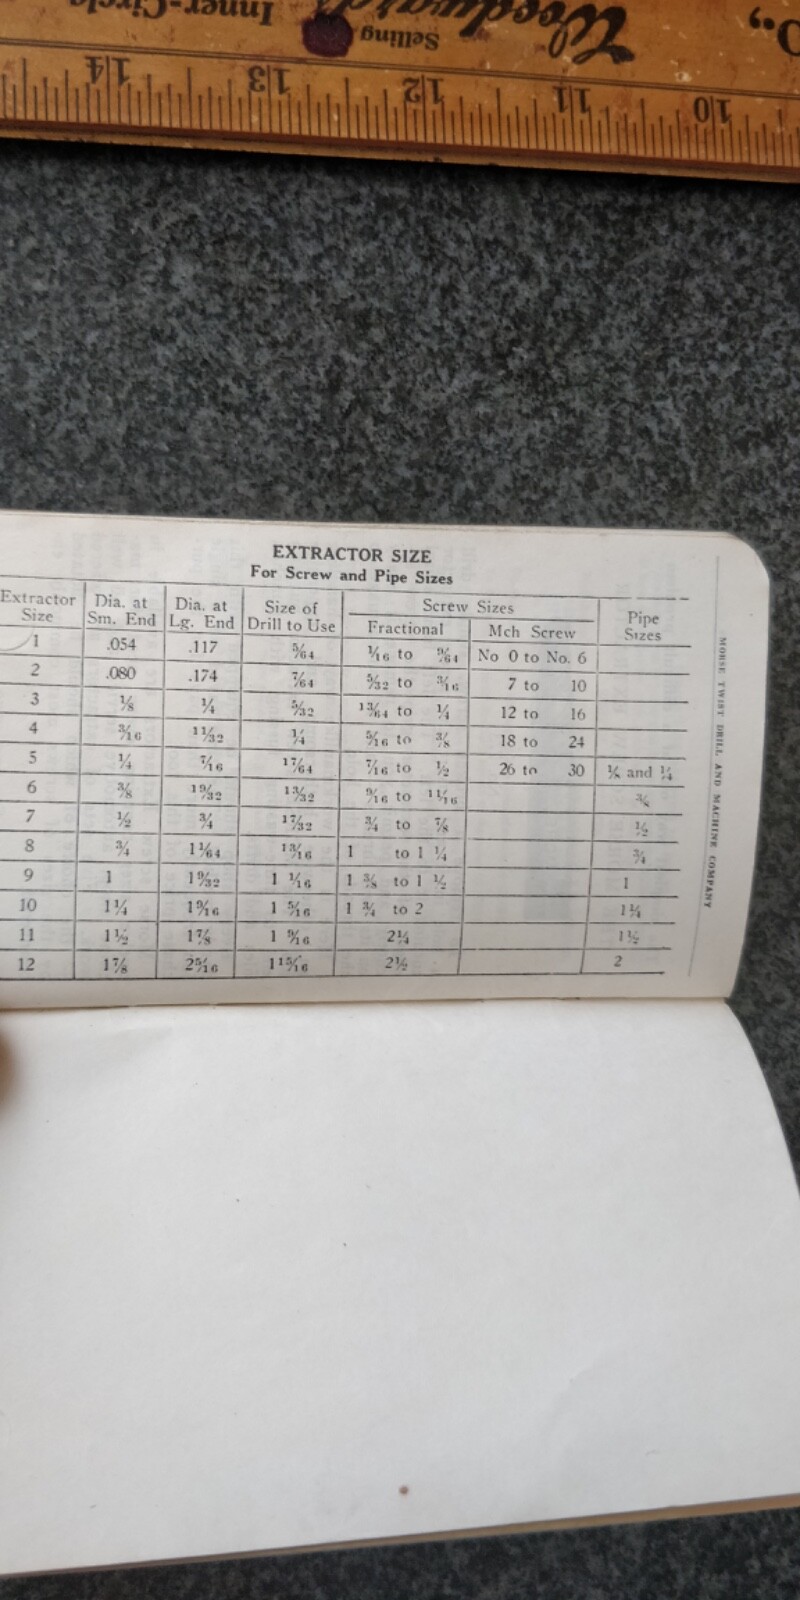 Inner-Circle
Selling
Woodward's
O.,
14 13 12 11 10
EXTRACTOR SIZE
For Screw and Pipe Sizes
Extractor Size | Dia. at Sm. End | Dia. at Lg. End | Size of Drill to Use | Screw Sizes | Pipe Sizes
Fractional | Mch Screw
1 | .054 | .117 | 5/64 | 1/16 to 9/64 | No 0 to No. 6
2 | .080 | .174 | 7/64 | 5/32 to 3/16 | 7 to 10
3 | 1/8 | 1/4 | 5/32 | 13/64 to 1/4 | 12 to 16
4 | 3/16 | 11/32 | 1/4 | 5/16 to 3/8 | 18 to 24
5 | 1/4 | 7/16 | 17/64 | 7/16 to 1/2 | 26 to 30 | 1/8 and 1/4
6 | 3/8 | 19/32 | 13/32 | 9/16 to 11/16 | 3/8
7 | 1/2 | 3/4 | 17/32 | 3/4 to 7/8 | 1/2
8 | 3/4 | 1 1/64 | 13/16 | 1 to 1 1/4 | 3/4
9 | 1 | 1 9/32 | 1 1/16 | 1 3/8 to 1 1/2 | 1
10 | 1 1/4 | 1 9/16 | 1 5/16 | 1 3/4 to 2 | 1 1/4
11 | 1 1/2 | 1 7/8 | 1 9/16 | 2 1/4 | 1 1/2
12 | 1 7/8 | 2 5/16 | 1 15/16 | 2 1/2 | 2
MORSE TWIST DRILL AND MACHINE COMPANY